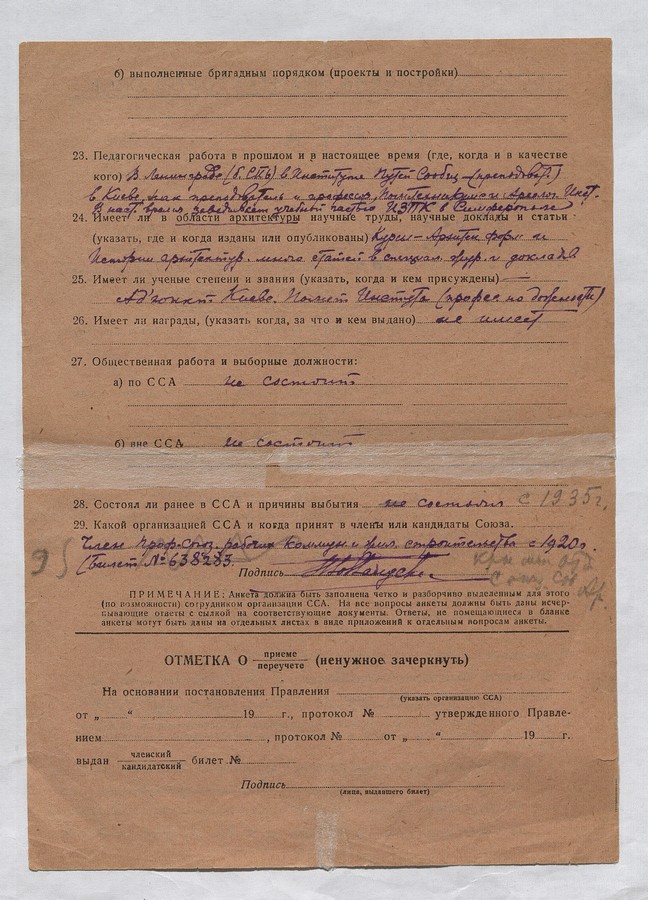 б) выполненные бригадным порядком (проекты и постройки)
23. Педагогическая работа в прошлом и в настоящее время (где, когда и в качестве
кого) В Ленинграде (б. СПБ) в Институте Путей Сообщ — (преподават.)
в Киеве, как преподаватель и профессор, Политехнический и Археолог. Инст.
В наст. время заведывает учебной частью в Симферополе
24. Имеет ли в области архитектуры научные труды, научные доклады и статьи
(указать, где и когда изданы или опубликованы) Курсы — Архитек форм и
Истории архитектур. много статей в специал. жур. и доклады
25. Имеет ли ученые степени и звания (указать, когда и кем присуждены) —
Ад'юнкт Киевс. Политех Института (професс по должности)
26. Имеет ли награды, (указать когда, за что и кем выдано) не имеет
27. Общественная работа и выборные должности:
а) по ССА не состоит
б) вне ССА не состоит
28. Состоял ли ранее в ССА и причины выбытия не состоял с 1935 г.
29. Какой организацией ССА и когда принят в члены или кандидаты Союза.
Член Проф-Союз. рабочих коммун. и жил. строительства с 1920 г.
(Билет № 638283.
95
Подпись
ПРИМЕЧАНИЕ: Анкета должна быть заполнена четко и разборчиво выделенным для этого
(по возможности) сотрудником организации ССА. На все вопросы анкеты должны быть даны исчер-
рывающие ответы с ссылкой на соответствующие документы. Ответы, не помещающиеся в бланке
анкеты могут быть даны на отдельных листах в виде приложений к отдельным вопросам анкеты.
ОТМЕТКА О приеме
переучете (ненужное зачеркнуть)
На основании постановления Правления
(указать организацию ССА)
от „ “ 19 г., протокол № утвержденного Правле-
нием , протокол № от „ “ 19 г.
выдан членский
кандидатский билет №
Подпись
(лица, выдавшего билет)